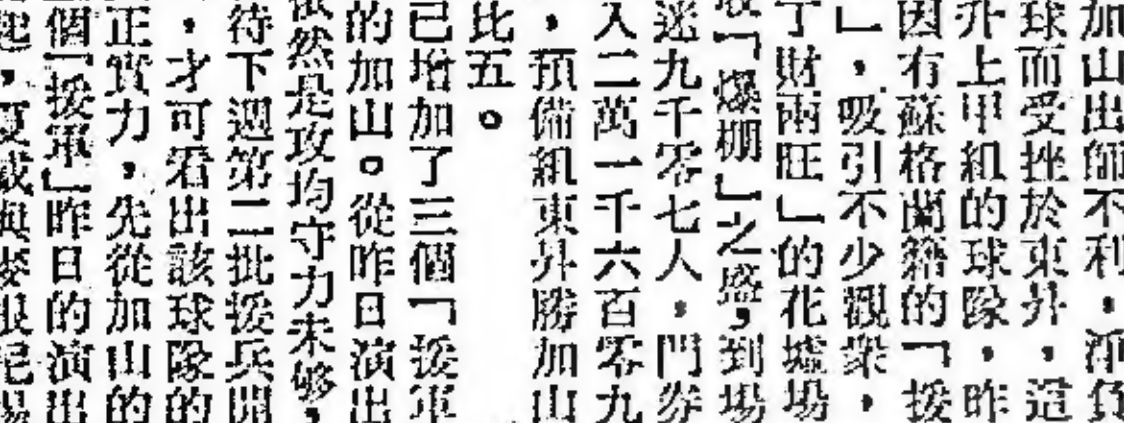 加山出師不利，淨負
球而受挫於東昇，這
升上甲組的球隊，昨
因有蘇格蘭籍的「援
」，吸引不少觀衆，
了財兩旺」的花墟場
收「爆棚」之盛，到場
迷九千零七人，門券
入二萬一千六百零九
，預備組東昇勝加山
比五。
已增加了三個「援軍
的加山。從昨日演出
雖然是攻均守力未够，
待下週第二批援兵開
，才可看出該球隊的
正實力，先從加山的
個「援軍」昨日的演出
起，夏威與麥根尼